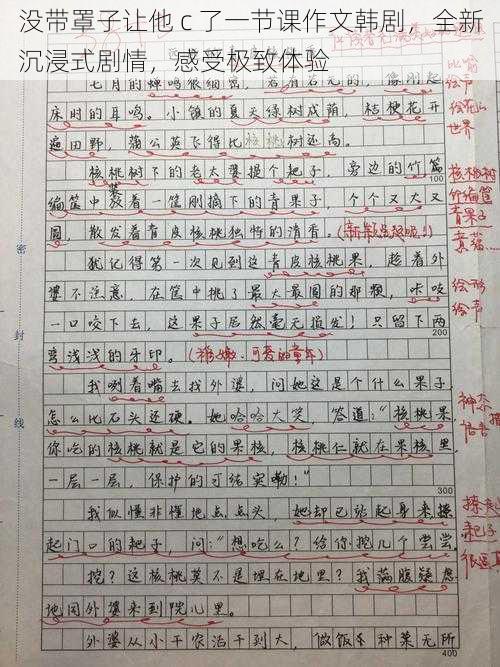 没带罩子让他 c 了一节课作文韩剧，全新
沉浸式剧情，感受极致体验
七月的蝉鸣很细密，若有若无的，像刚起
床时的耳鸣。小镇的夏天绿树成荫，桔梗花开
遍田野，蒲公英飞得比核桃树还高。
核桃树下的老太婆摸个耙子，旁边的竹篇
100
编筐中装着一筐刚摘下的青果子，个个又大又
圆，散发着青皮核桃独特的清香。
犹记得第一次见到这青皮核桃果，趁着外
婆不注意，在筐中挑了最大最圆的那颗，咔咬
一口咬下去，这果子居然毫无损发！只留下两
200
弯浅浅的牙印。
我咧着嘴去找外婆，问她这是个什么果子
怎么比石头还硬。她哈哈大笑，答道：“核桃果，
你吃的核桃就是它的果核，核桃仁就在果核里，
一层一层，保护的可结实嘞！”
300
我似懂非懂地点点头，她却已站起身来操
起门口的耙子，问：“想吃么？给你挖几个尝尝。
挖？这核桃莫不是埋在地里？我满腹疑虑
地同外婆来到院儿里。
外婆从小干农活干到大，做饭种菜无所
400
密
封
线
比喻
绘声
世界
核桃树
竹编筐
青果子
绘形
绘声
神态